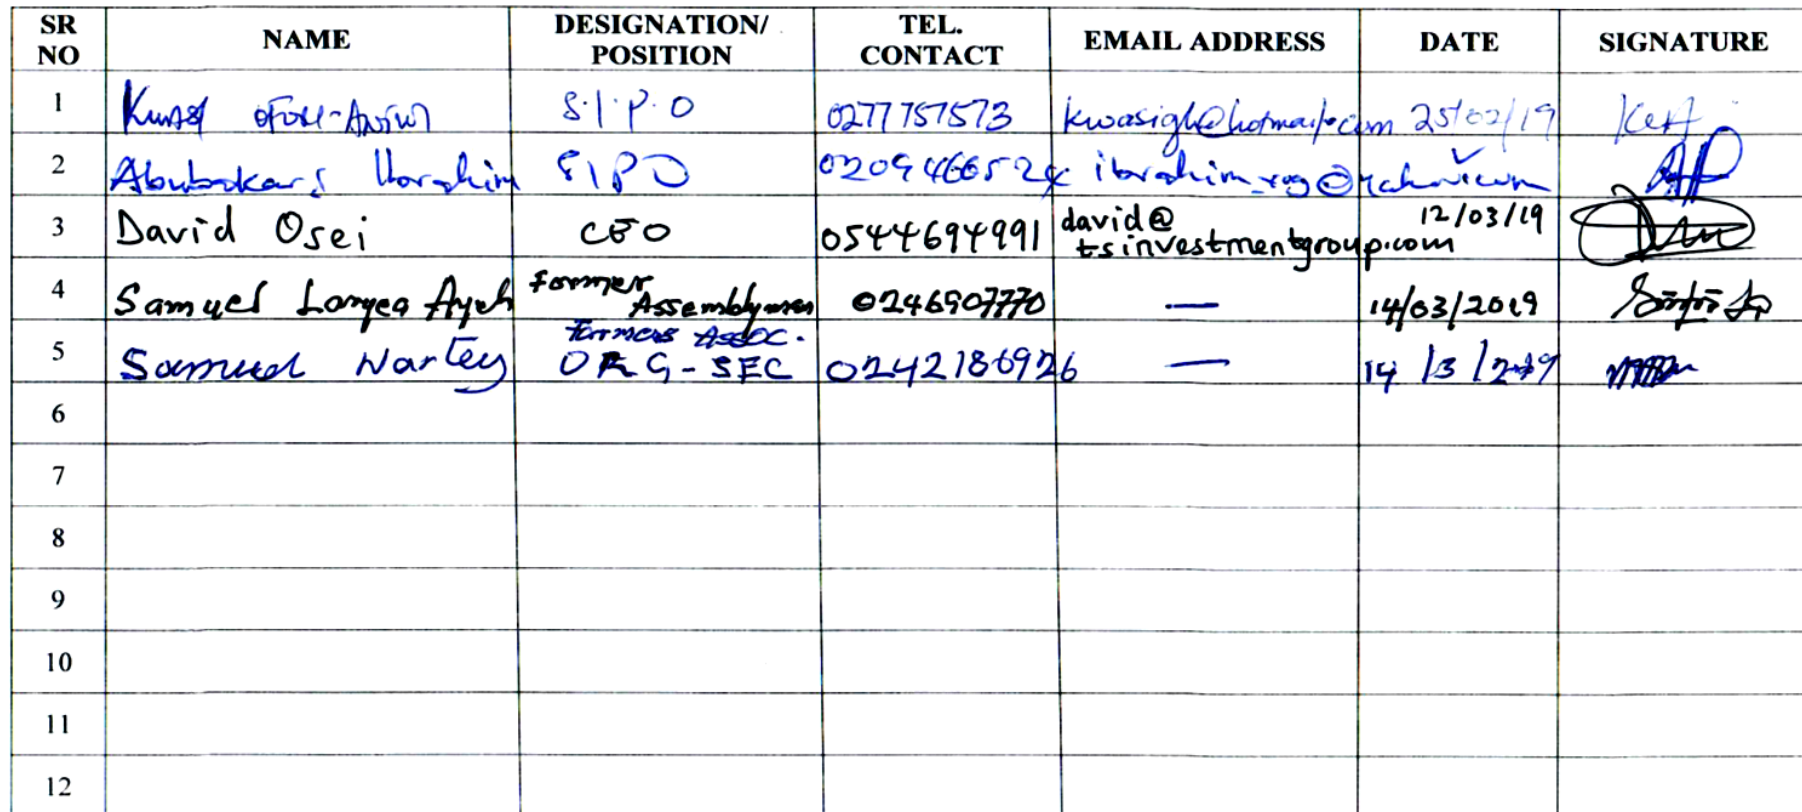 SR NO NAME DESIGNATION/ POSITION TEL. CONTACT EMAIL ADDRESS DATE SIGNATURE
1 S.I.P.O 0277757573 kwasigh@hotmail.com 25/02/19
2 Ibrahim SIPO
3 David Osei CEO 0544694991 david@ tsinvestmentgroup.com 12/03/19
4 Samuel Laryea Ayeh Former Assemblyman 0246907770 — 14/03/2019
5 Samuel Nartey Farmers Assoc. ORG-SEC 0242186926 — 14/3/2019
6
7
8
9
10
11
12